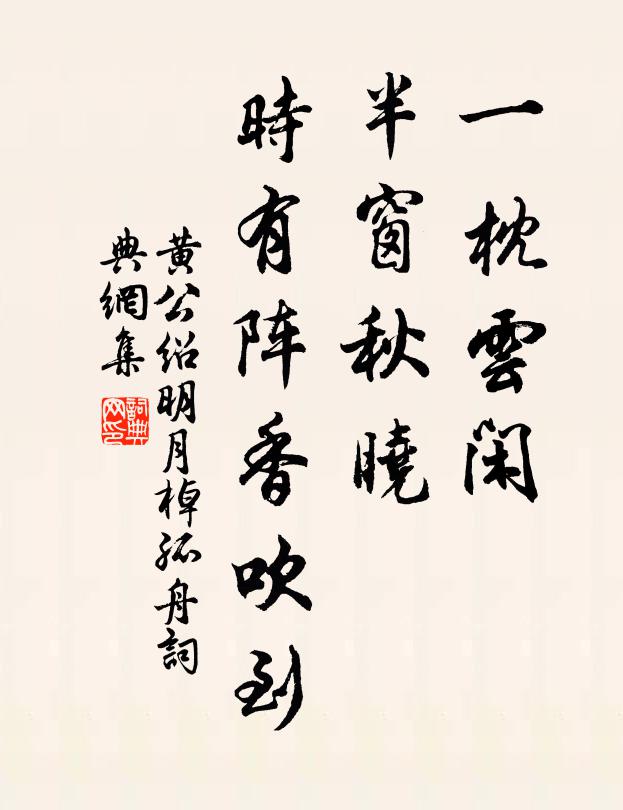 一枕雲閑
半窗秋曉
時有阵香吹到
黄公绍明月棹孤舟詞
典網集
詞典网印